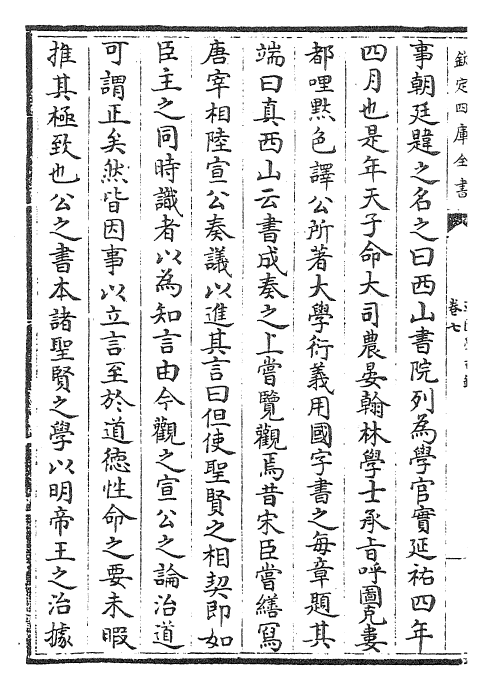 欽定四庫全書
卷七
事朝廷韙之名之曰西山書院列為學官實延祐四年
四月也是年天子命大司農晏翰林學士承旨呼圖克婁
都哩黙色譯公所著大學衍義用國字書之每章題其
端曰真西山云書成奏之上嘗覽觀焉昔宋臣嘗繕冩
唐宰相陸宣公奏議以進其言曰但使聖賢之相契即如
臣主之同時識者以為知言由今觀之宣公之論治道
可謂正矣然皆因事以立言至於道徳性命之要未暇
推其極致也公之書本諸聖賢之學以明帝王之治據